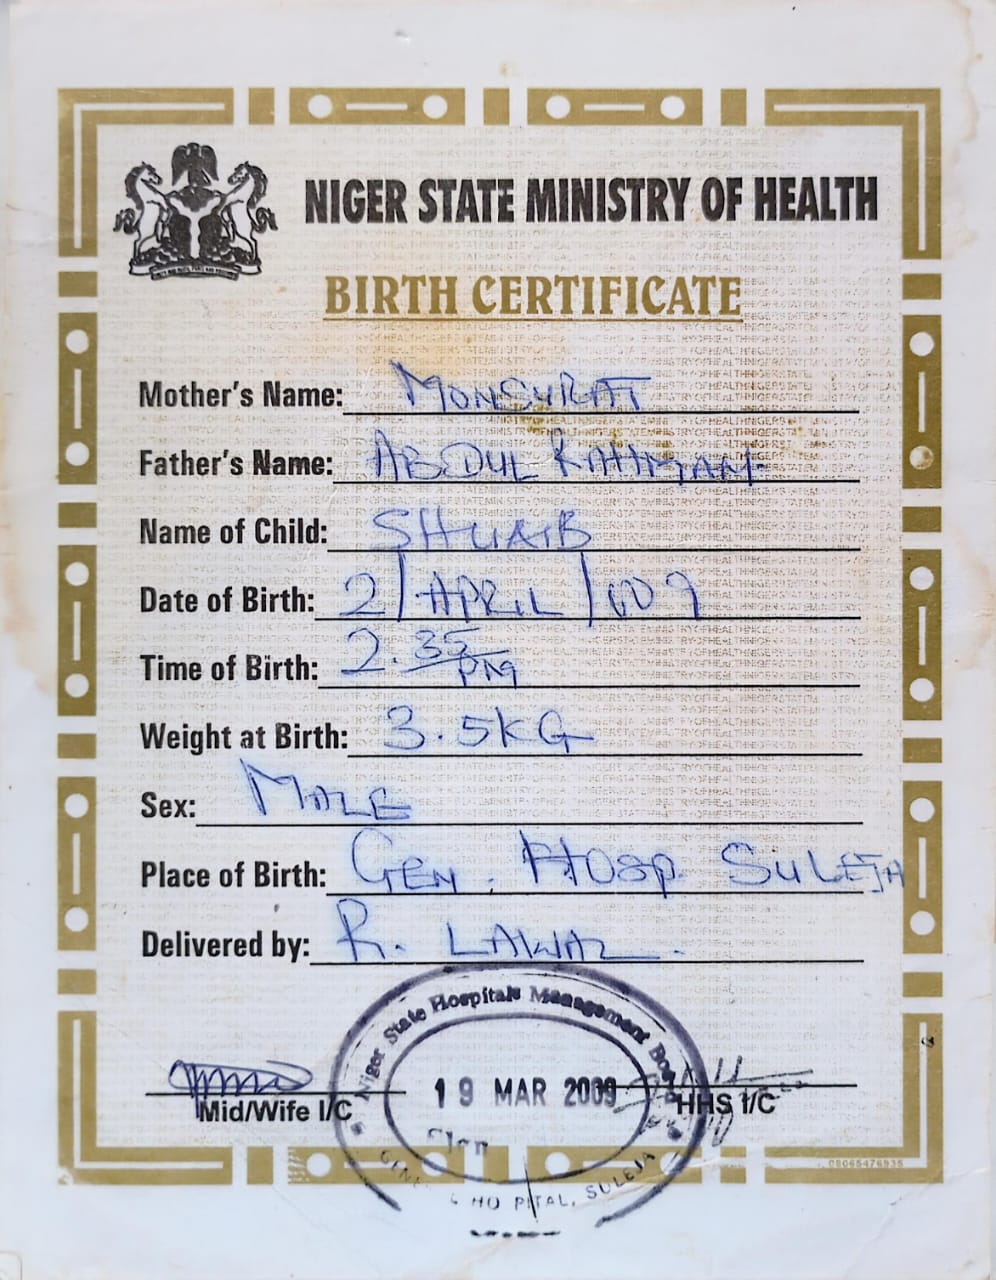 NIGER STATE MINISTRY OF HEALTH
BIRTH CERTIFICATE
Mother's Name: MONSURAT
Father's Name: ABDUL RAHMAN
Name of Child: SHUAIB
Date of Birth: 2/APRIL/009
Time of Birth: 2.35PM
Weight at Birth: 3.5KG
Sex: MALE
Place of Birth: GEN. HOSP. SULEJA
Delivered by: R. LAWAL.
Niger State Hospitals Management Board
19 MAR 2009
Mid/Wife I/C
HHS I/C
Sign
SULEJA
08065476935